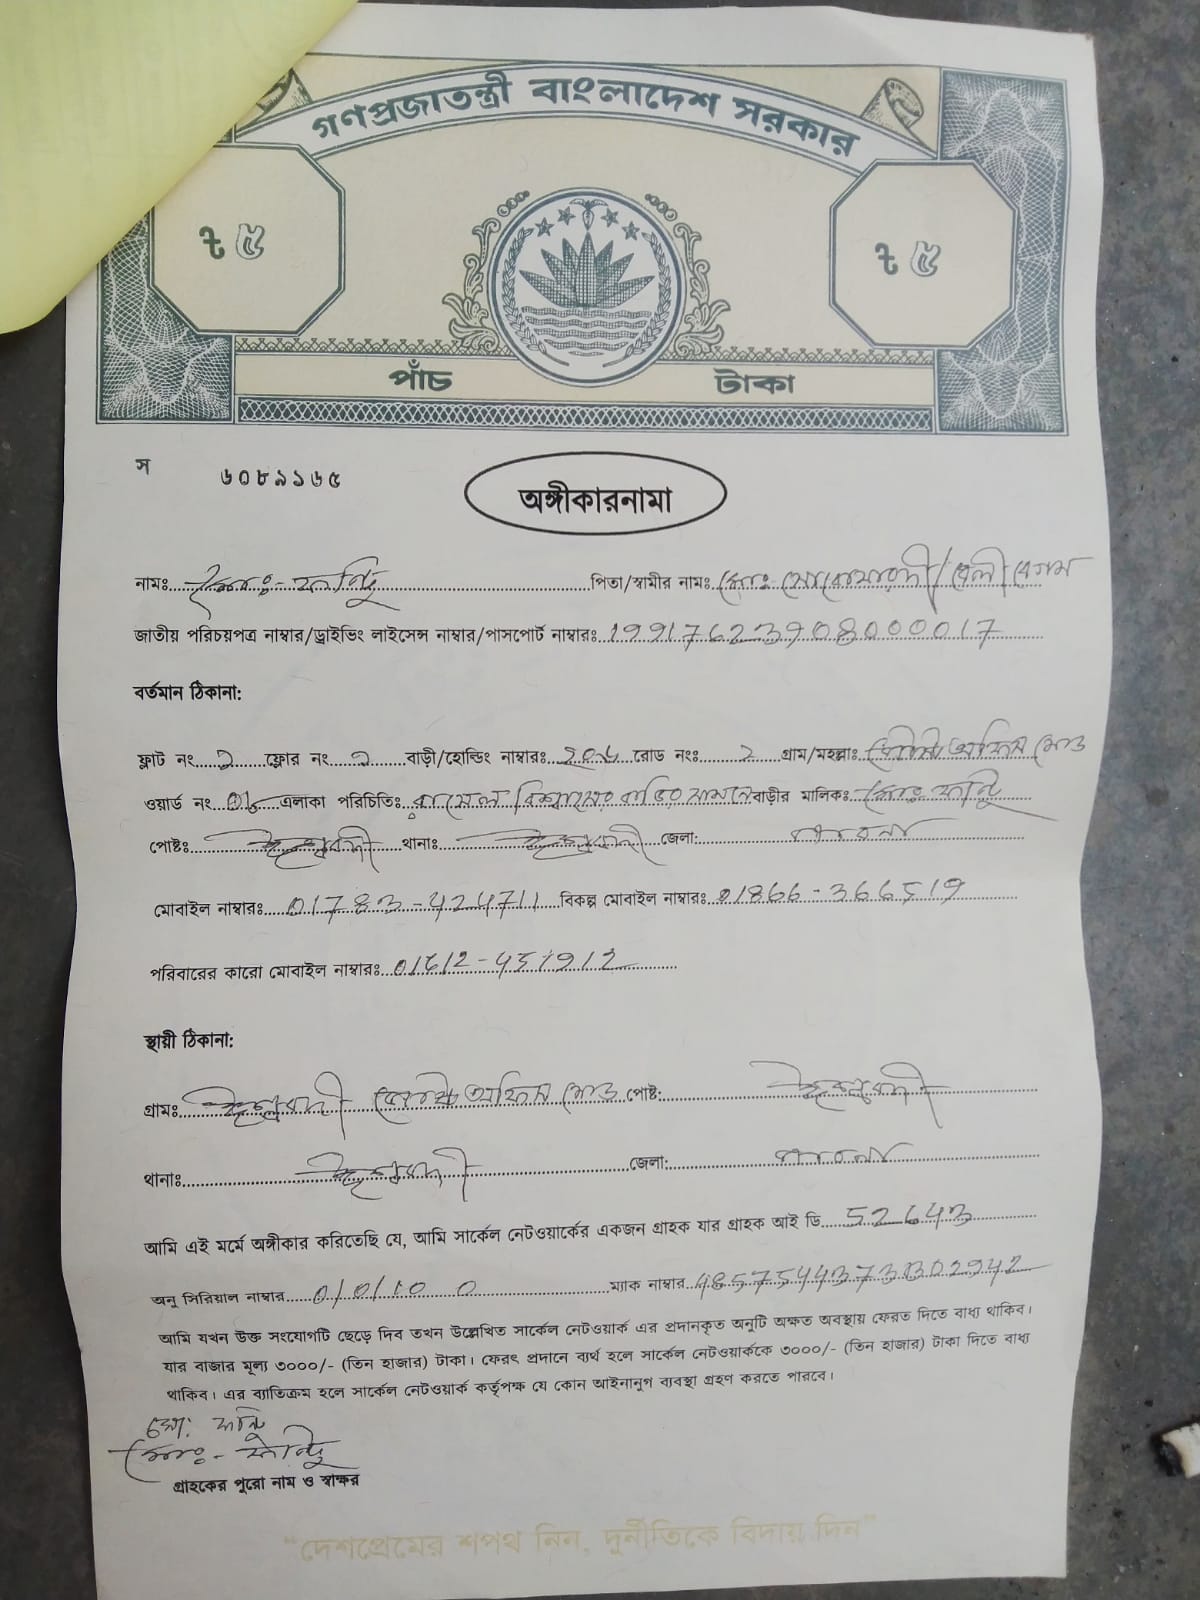 গণপ্রজাতন্ত্রী বাংলাদেশ সরকার
৳ ৫ ৳ ৫
পাঁচ টাকা
স ৬০৮৯১৬৫
অঙ্গীকারনামা
নামঃ মোঃ- পিতা/স্বামীর নামঃ মোঃ / বেলী বেগম
জাতীয় পরিচয়পত্র নাম্বার/ড্রাইভিং লাইসেন্স নাম্বার/পাসপোর্ট নাম্বারঃ 19917623908000017
বর্তমান ঠিকানা:
ফ্লাট নং ফ্লোর নং বাড়ী/হোল্ডিং নাম্বারঃ রোড নংঃ গ্রাম/মহল্লাঃ অফিস মোড়
ওয়ার্ড নং এলাকা পরিচিতিঃ বিশ্বাসের বাড়ির সামনে বাড়ীর মালিক: মোঃ
পোষ্টঃ ঈশ্বরদী থানাঃ ঈশ্বরদী জেলা: পাবনা
মোবাইল নাম্বারঃ 01783-424711 বিকল্প মোবাইল নাম্বারঃ 01866-366519
পরিবারের কারো মোবাইল নাম্বারঃ
স্থায়ী ঠিকানা:
গ্রামঃ ঈশ্বরদী অফিস মোড় পোষ্ট: ঈশ্বরদী
থানাঃ ঈশ্বরদী জেলা: পাবনা
আমি এই মর্মে অঙ্গীকার করিতেছি যে, আমি সার্কেল নেটওয়ার্কের একজন গ্রাহক যার গ্রাহক আই ডি 52643
অনু সিরিয়াল নাম্বার ম্যাক নাম্বার
আমি যখন উক্ত সংযোগটি ছেড়ে দিব তখন উল্লেখিত সার্কেল নেটওয়ার্ক এর প্রদানকৃত অনুটি অক্ষত অবস্থায় ফেরত দিতে বাধ্য থাকিব।
যার বাজার মূল্য ৩০০০/- (তিন হাজার) টাকা। ফেরৎ প্রদানে ব্যর্থ হলে সার্কেল নেটওয়ার্ককে ৩০০০/- (তিন হাজার) টাকা দিতে বাধ্য
থাকিব। এর ব্যাতিক্রম হলে সার্কেল নেটওয়ার্ক কর্তৃপক্ষ যে কোন আইনানুগ ব্যবস্থা গ্রহণ করতে পারবে।
মো:
মোঃ-
গ্রাহকের পুরো নাম ও স্বাক্ষর
"দেশপ্রেমের শপথ নিন, দুর্নীতিকে বিদায় দিন"